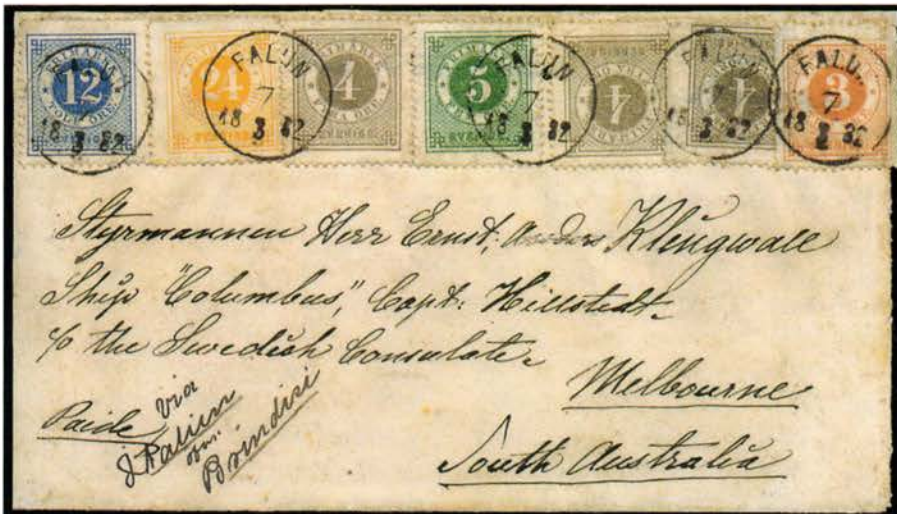 12
24
4
5
4
4
3
FALUN
7
18 3 82
FALUN
7
18 3 82
Styrmannen Herr Ernst Anders Klingwall
Ship "Columbus", Capt: Hillstedt
c/o the Swedish Consulate
Melbourne
South Australia
Paide
via
Italien
Brindisi